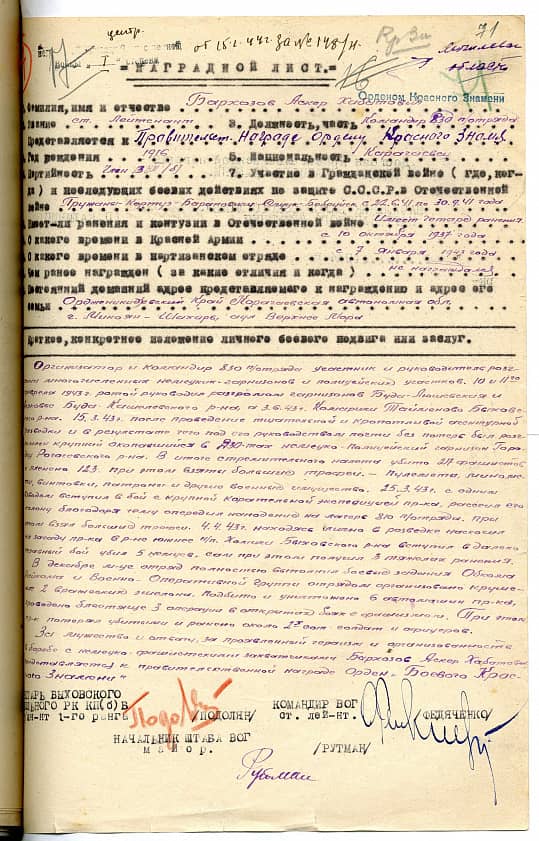 центр.
об 15.1.44г. за № 148/н.
71
Могилевск
область
= НАГРАДНОЙ ЛИСТ. =
Орденом Красного Знамени
Фамилия, имя и отчество Бархозов Аскер Хабатович
Звание ст. Лейтенант 3. Должность, часть Командир 830 п/отряда
Представляется к Правительст. Награде Ордену Красного Знамя
Год рождения 1916 5. Национальность Карачаевец
Партийность член ВКП(б) 7. Участие в Гражданской войне ( где, ког-
да ) и последующих боевых действиях по защите С.С.С.Р. в Отечественной
войне Пружаны-Картуз-Барановичи-Слуцк-Бобруйск с 22.6.41 по 30.9.41 года
Имеет-ли ранения и контузии в Отечественной войне Имеет четыре ранения
С какого времени в Красной Армии с 10 октября 1937 года
С какого времени в партизанском отряде с 7 января 1943 года
Чем ранее награжден ( за какие отличия и когда ) не награждался
Постоянный домашний адрес представляемого к награждению и адрес его
семьи Орджоникидзевский Край Карачаевская автономная обл.
г. Микоян-Шахар, аул Верхнее Мара
Краткое, конкретное изложение личного боевого подвига или заслуг.
Организатор и командир 830 п/отряда участник и руководитель разг
рома многочисленных немецких-гарнизонов и полицейских участков. 10 и 11го
апреля 1943г. ротой руководил разгромом гарнизонов Буда-Люшевская и
Буда-Кошелевского р-на, а 3.6.43г. Комарики Таймоново Быховс
кого р-на. 15.3.43г. после проведение тщательной и кропотливой агентурной
разведки и в результате чего под его руководством почти без потерь был разг
ромлен крупный окопавшийся в ДЗОТ-ах немецко-полицейский гарнизон Горо
Рогачевского р-на. В итоге стремительного налета убито 27 фашистов
пленено 123 при этом взяты большие трофеи - пулеметы, миномё
ты, винтовки, патроны и другие военные имущество. 25.3.43г. с одним
взводом вступил в бой с крупной карательной экспедицией пр-ка, рассеил его
колону благодаря чему опередил нападение на лагерь 810 п/отряда, при
этом взял большие трофеи. 4.4.43г. находясь лично в разведке наскочил
на засаду пр-ка в р-не южнее н/п. Холики Быховского р-на вступил в далеко
неравный бой убил 5 немцев. сам при этом получил 3 тяжелая ранения.
В декабре м-це отряд полностью выполнил боевые задания Обкома
Райкома и Военно-Оперативной группы отрядом организовано круше-
ние 2 вражеских эшелона. Подбито и уничтожено 6 автомашин пр-ка,
проведено блестяще 3 операции в открытых боях с фашизмом. При этом
пр-к потерял убитыми и ранено около 2х сот солдат и офицеров.
За мужество и отвагу, за проявленный героизм и организованность
в борьбе с немецко-фашистскими захватчиками Бархозов Аскер Хабатович
представляется к правительственной награде Орден „Боевого Крас-
ного Знамени“
СЕКРЕТАРЬ БЫХОВСКОГО
ПОДПОЛЬНОГО РК КП(б)Б КОМАНДИР ВОГ
1-го ранга /ПОДОЛЯН/ СТ. ЛЕЙ-НТ. /ФЕДЯЧЕНКО/
НАЧАЛЬНИК ШТАБА ВОГ
майор. /РУТМАН/
Рутман